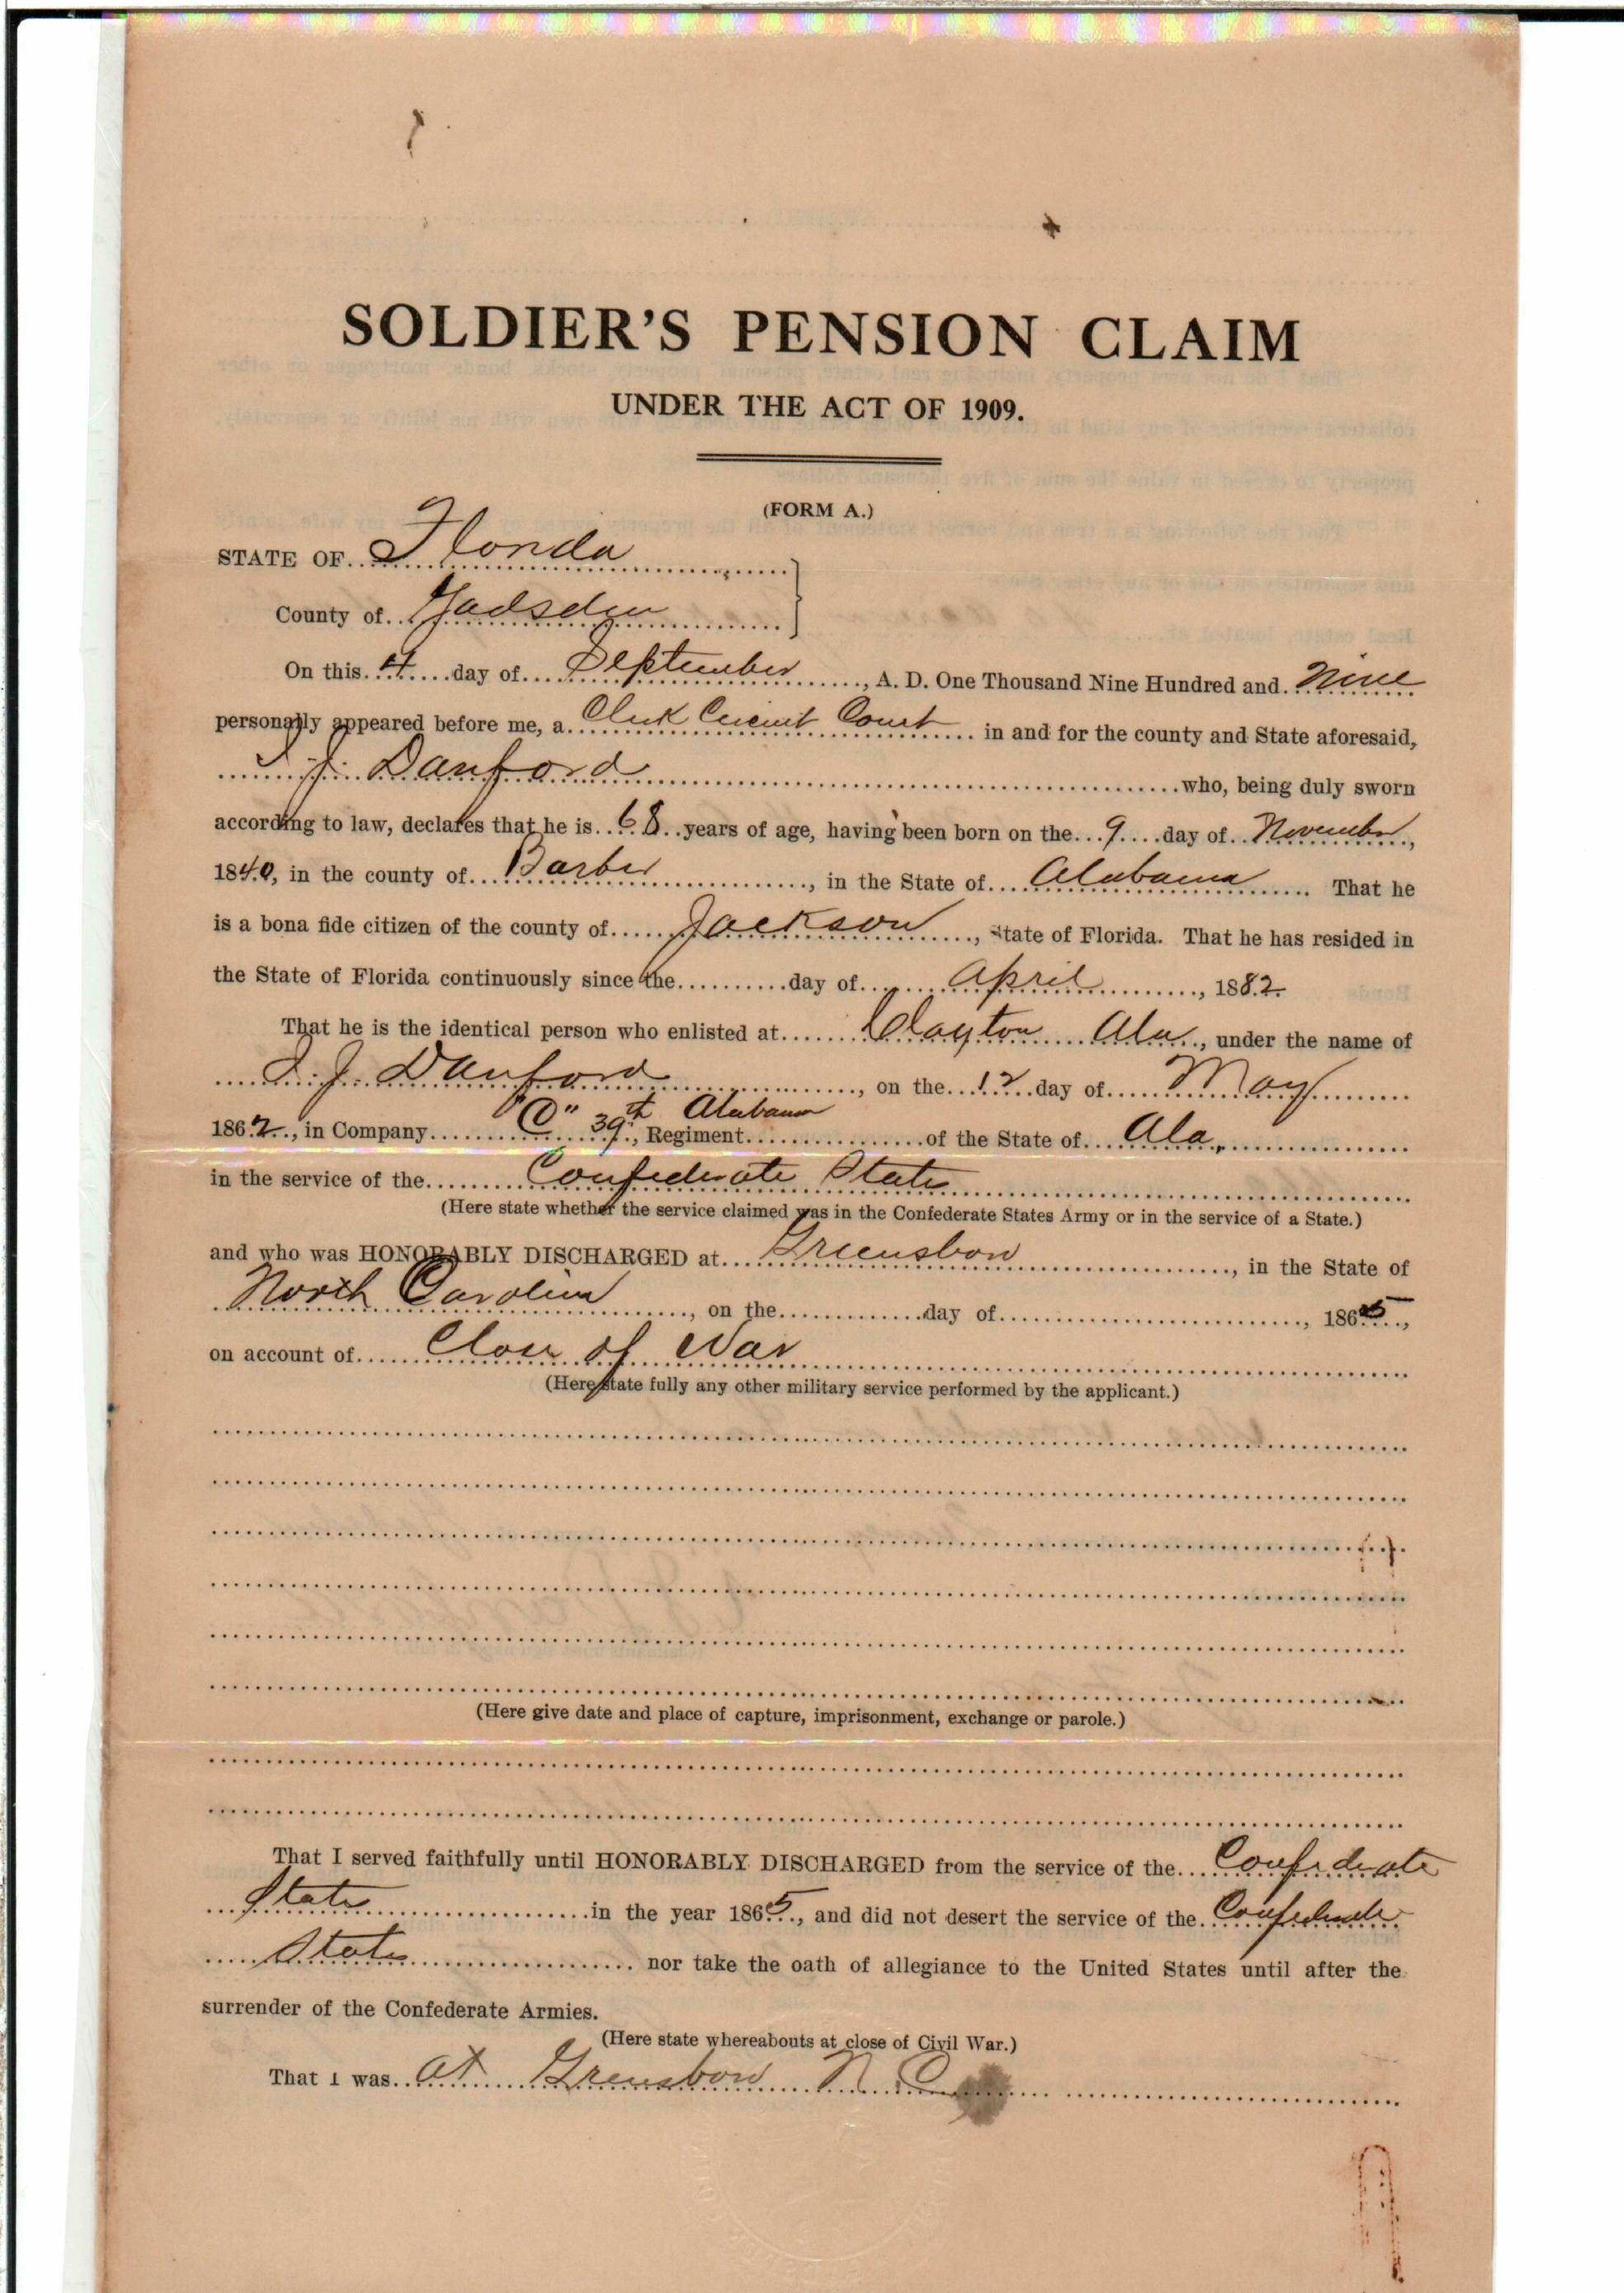 SOLDIER'S PENSION CLAIM
UNDER THE ACT OF 1909.
(FORM A.)
STATE OF Florida
County of Gadsden
On this 4 day of September, A. D. One Thousand Nine Hundred and Nine
personally appeared before me, a Clerk Circuit Court in and for the county and State aforesaid,
J. Danford who, being duly sworn
according to law, declares that he is 68 years of age, having been born on the 9 day of November,
1840, in the county of Barber, in the State of Alabama. That he
is a bona fide citizen of the county of Jackson, State of Florida. That he has resided in
the State of Florida continuously since the day of April, 1882.
That he is the identical person who enlisted at Clayton Ala., under the name of
J. Danford, on the 12 day of May
1862, in Company "C" 39th Alabama, Regiment of the State of Ala,
in the service of the Confederate States
(Here state whether the service claimed was in the Confederate States Army or in the service of a State.)
and who was HONORABLY DISCHARGED at Greensboro, in the State of
North Carolina, on the day of, 1865,
on account of Close of War
(Here state fully any other military service performed by the applicant.)
(Here give date and place of capture, imprisonment, exchange or parole.)
That I served faithfully until HONORABLY DISCHARGED from the service of the Confederate
States in the year 1865, and did not desert the service of the Confederate
States nor take the oath of allegiance to the United States until after the
surrender of the Confederate Armies.
(Here state whereabouts at close of Civil War.)
That I was at Greensboro N. C.